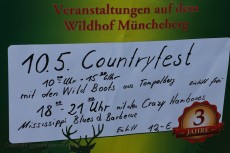 Veranstaltungen auf dem
Wildhof Müncheberg
10.5. Countryfest
10 Uhr - 15 Uhr
mit den Wild Boots aus Tempelberg Eintritt frei
18 - 21 Uhr mit den Crazy Hambones
Mississippi Blues & Barbecue
Eintritt 12,-€
3
JAHRE